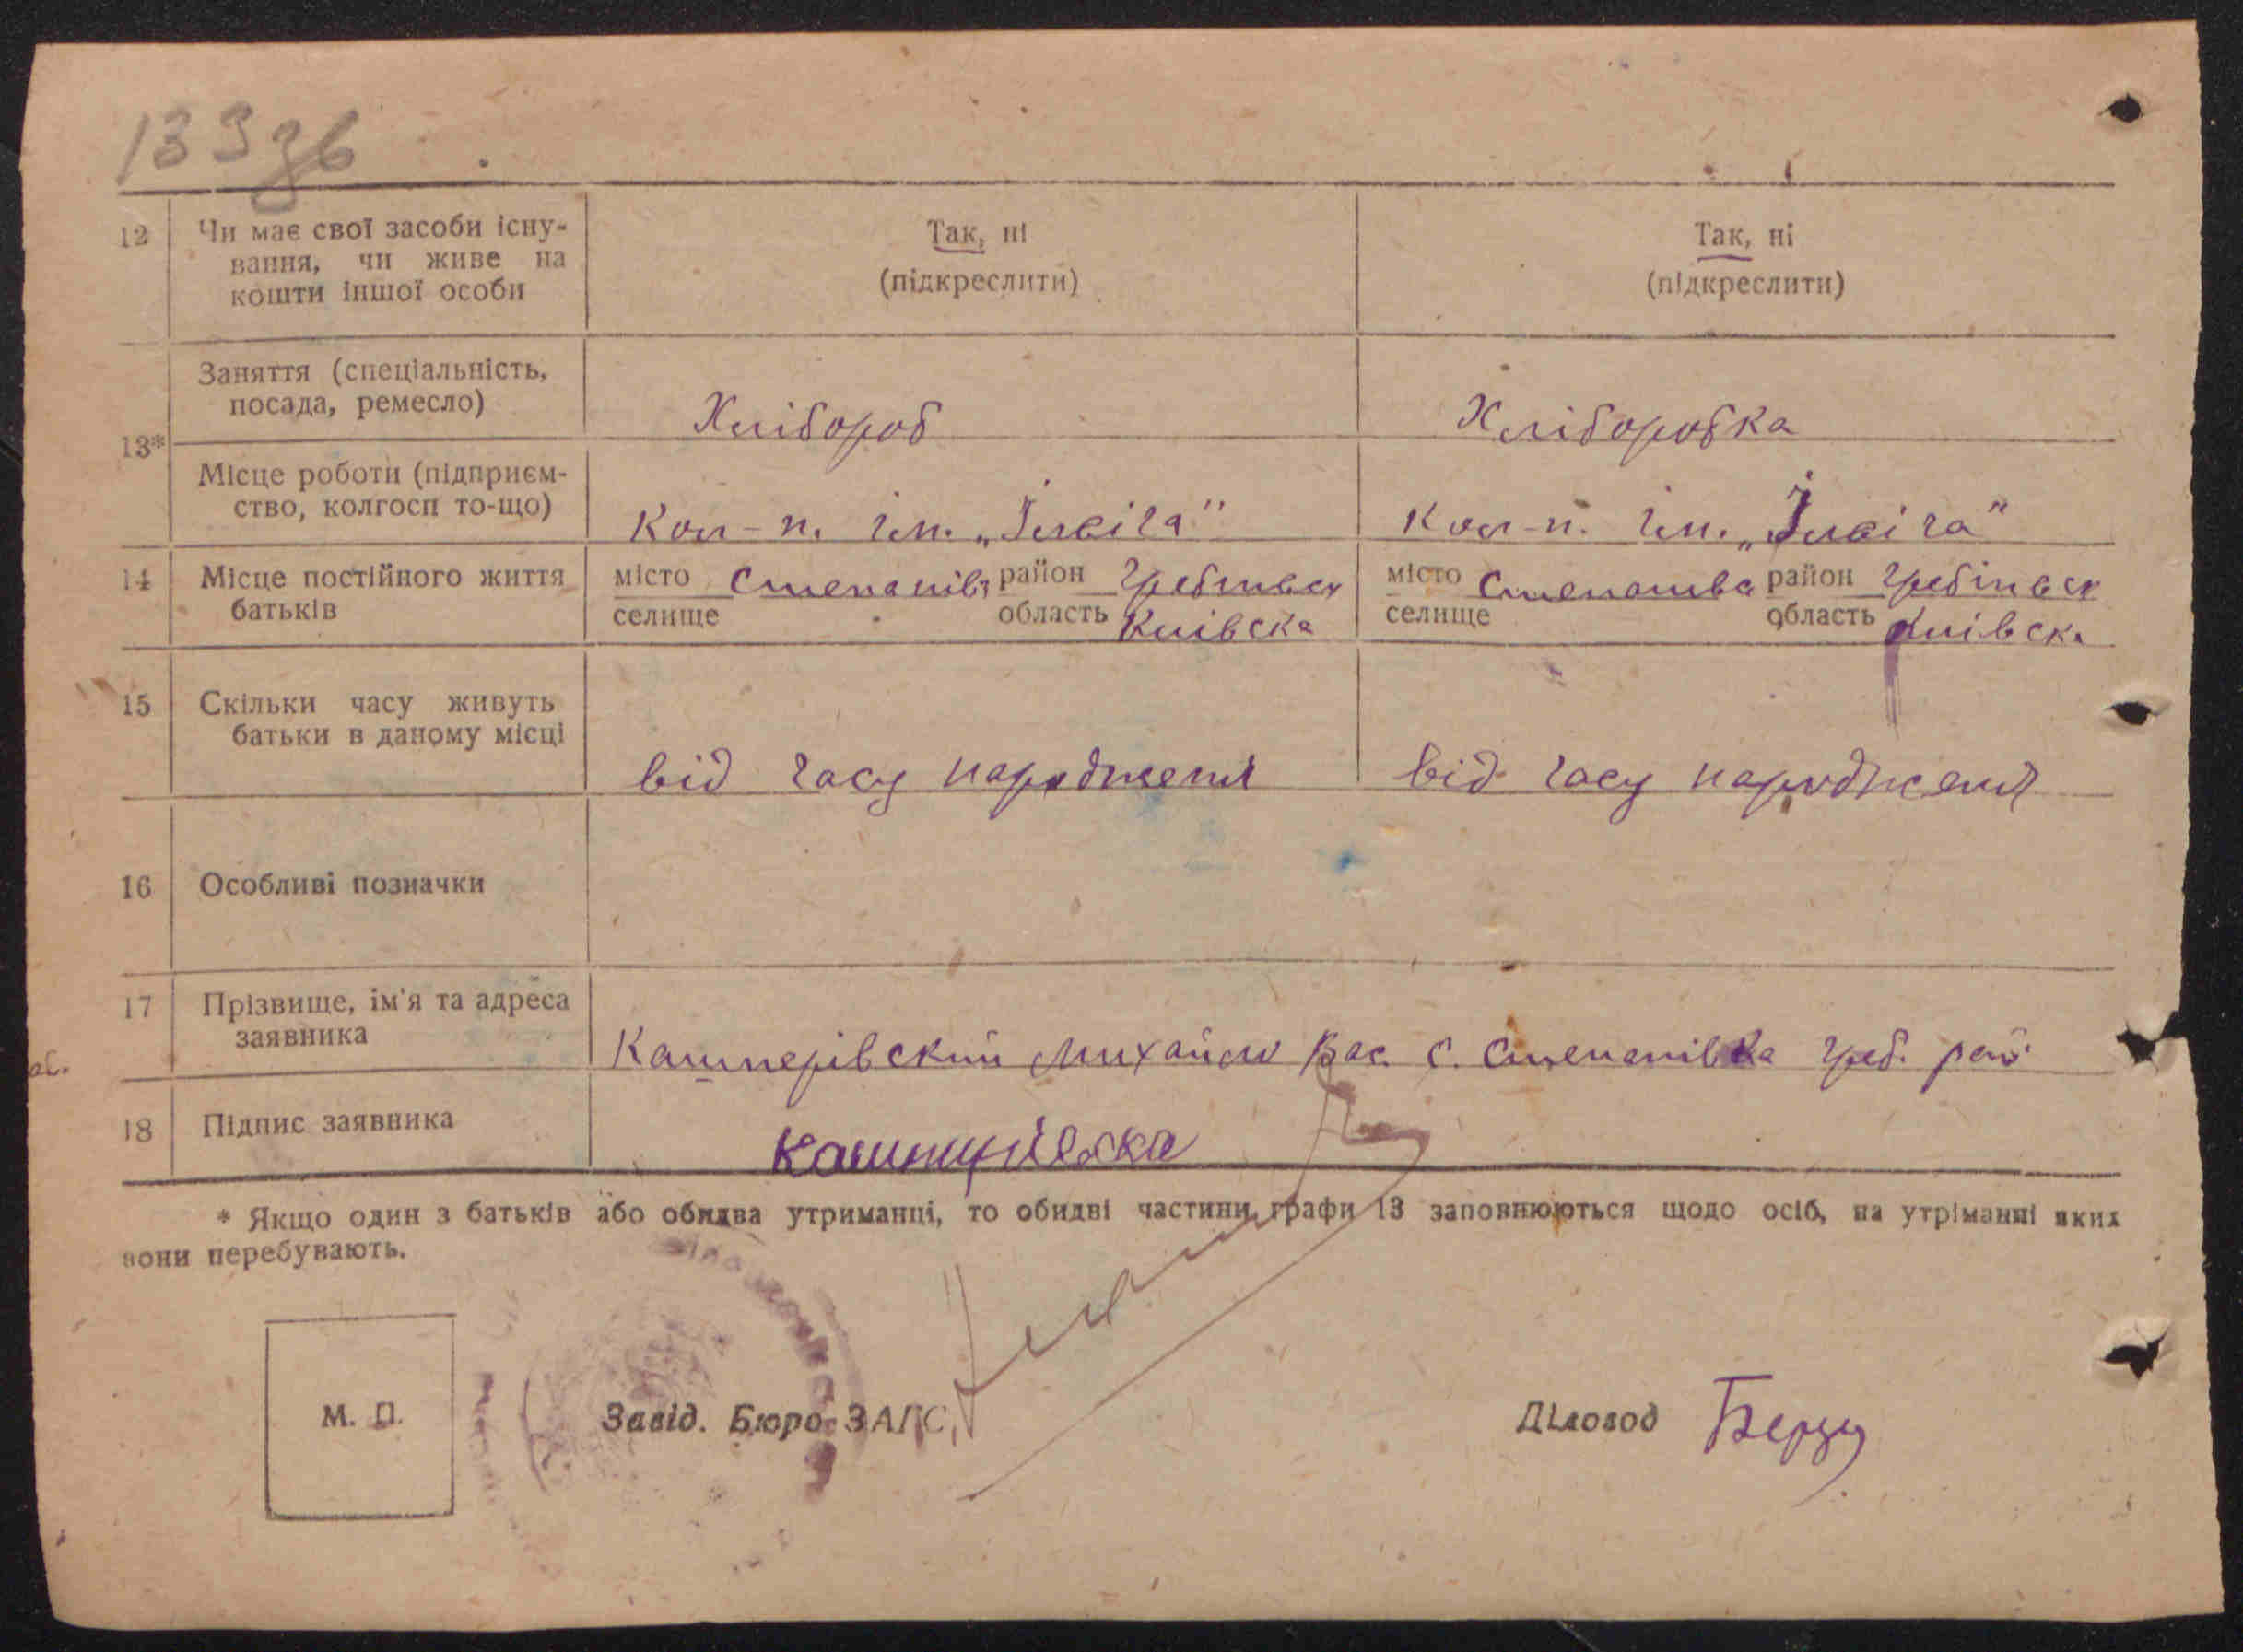 133 зв
12 Чи має свої засоби існу-
вання, чи живе на
кошти іншої особи
Так, ні
(підкреслити)
Так, ні
(підкреслити)
13*
Заняття (спеціальність,
посада, ремесло)
Хлібороб
Хліборобка
Місце роботи (підприєм-
ство, колгосп то-що)
Кол-п. ім. „Ілліча"
Кол-п. ім. „Ілліча"
14 Місце постійного життя
батьків
місто Степанівка район Гребінвск
селище область Київска
місто Степанівка район Гребінвск
селище область Київска
15 Скільки часу живуть
батьки в даному місці
від часу народженя
від часу народженя
16 Особливі позначки
17 Прізвище, ім'я та адреса
заявника
Кашперівский Михайло Вас. с. Степанівка Греб. рай
18 Підпис заявника
* Якщо один з батьків або обидва утриманці, то обидві частини графи 13 заповнюються щодо осіб, на утріманні яких
вони перебувають.
М. П.
Завід. Бюро ЗАГС
Діловод